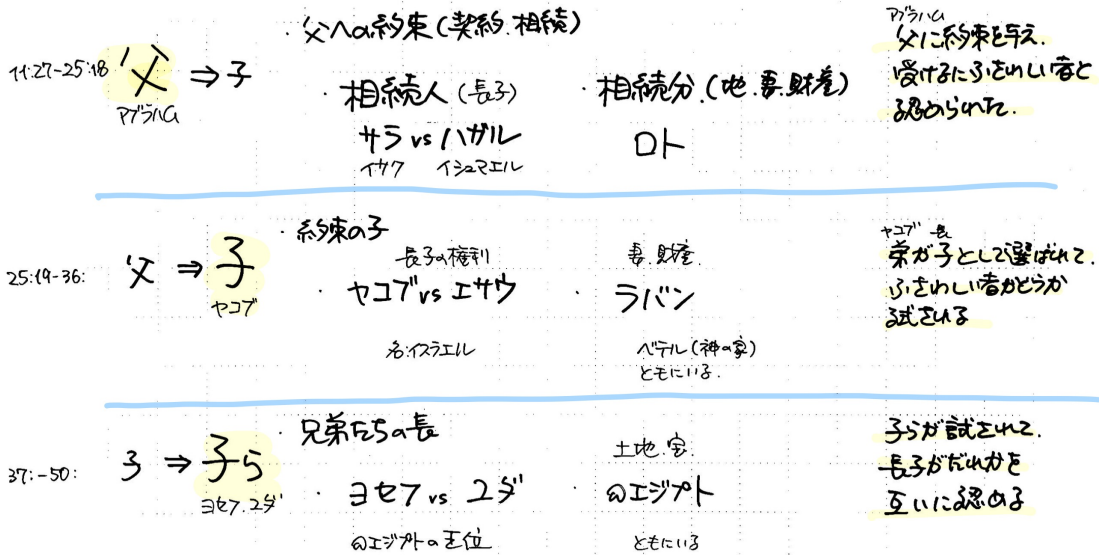 ・父への約束(契約.相続)
11:27-25:18 父⇒子
アブラハム
・相続人(長子)
サラ vs ハガル
イサク イシュマエル
・相続分.(地.妻.財産)
ロト
アブラハム
父に約束を与え.
受けるにふさわしい者と
認められた.
・約束の子
25:19-36: 父⇒子
ヤコブ
長子の権利
・ヤコブ vs エサウ
名:イスラエル
妻.財産.
・ラバン
ベテル(神の家)
ともにいる.
ヤコブ
弟が子として選ばれて.
ふさわしい者かどうか
試される
・兄弟たちの長
37:-50: ⇒子ら
ヨセフ.ユダ
・ヨセフ vs ユダ
エジプトの王位
土地.
・エジプト
ともにいる
子らが試されて.
長子がだれかを
互いに認める